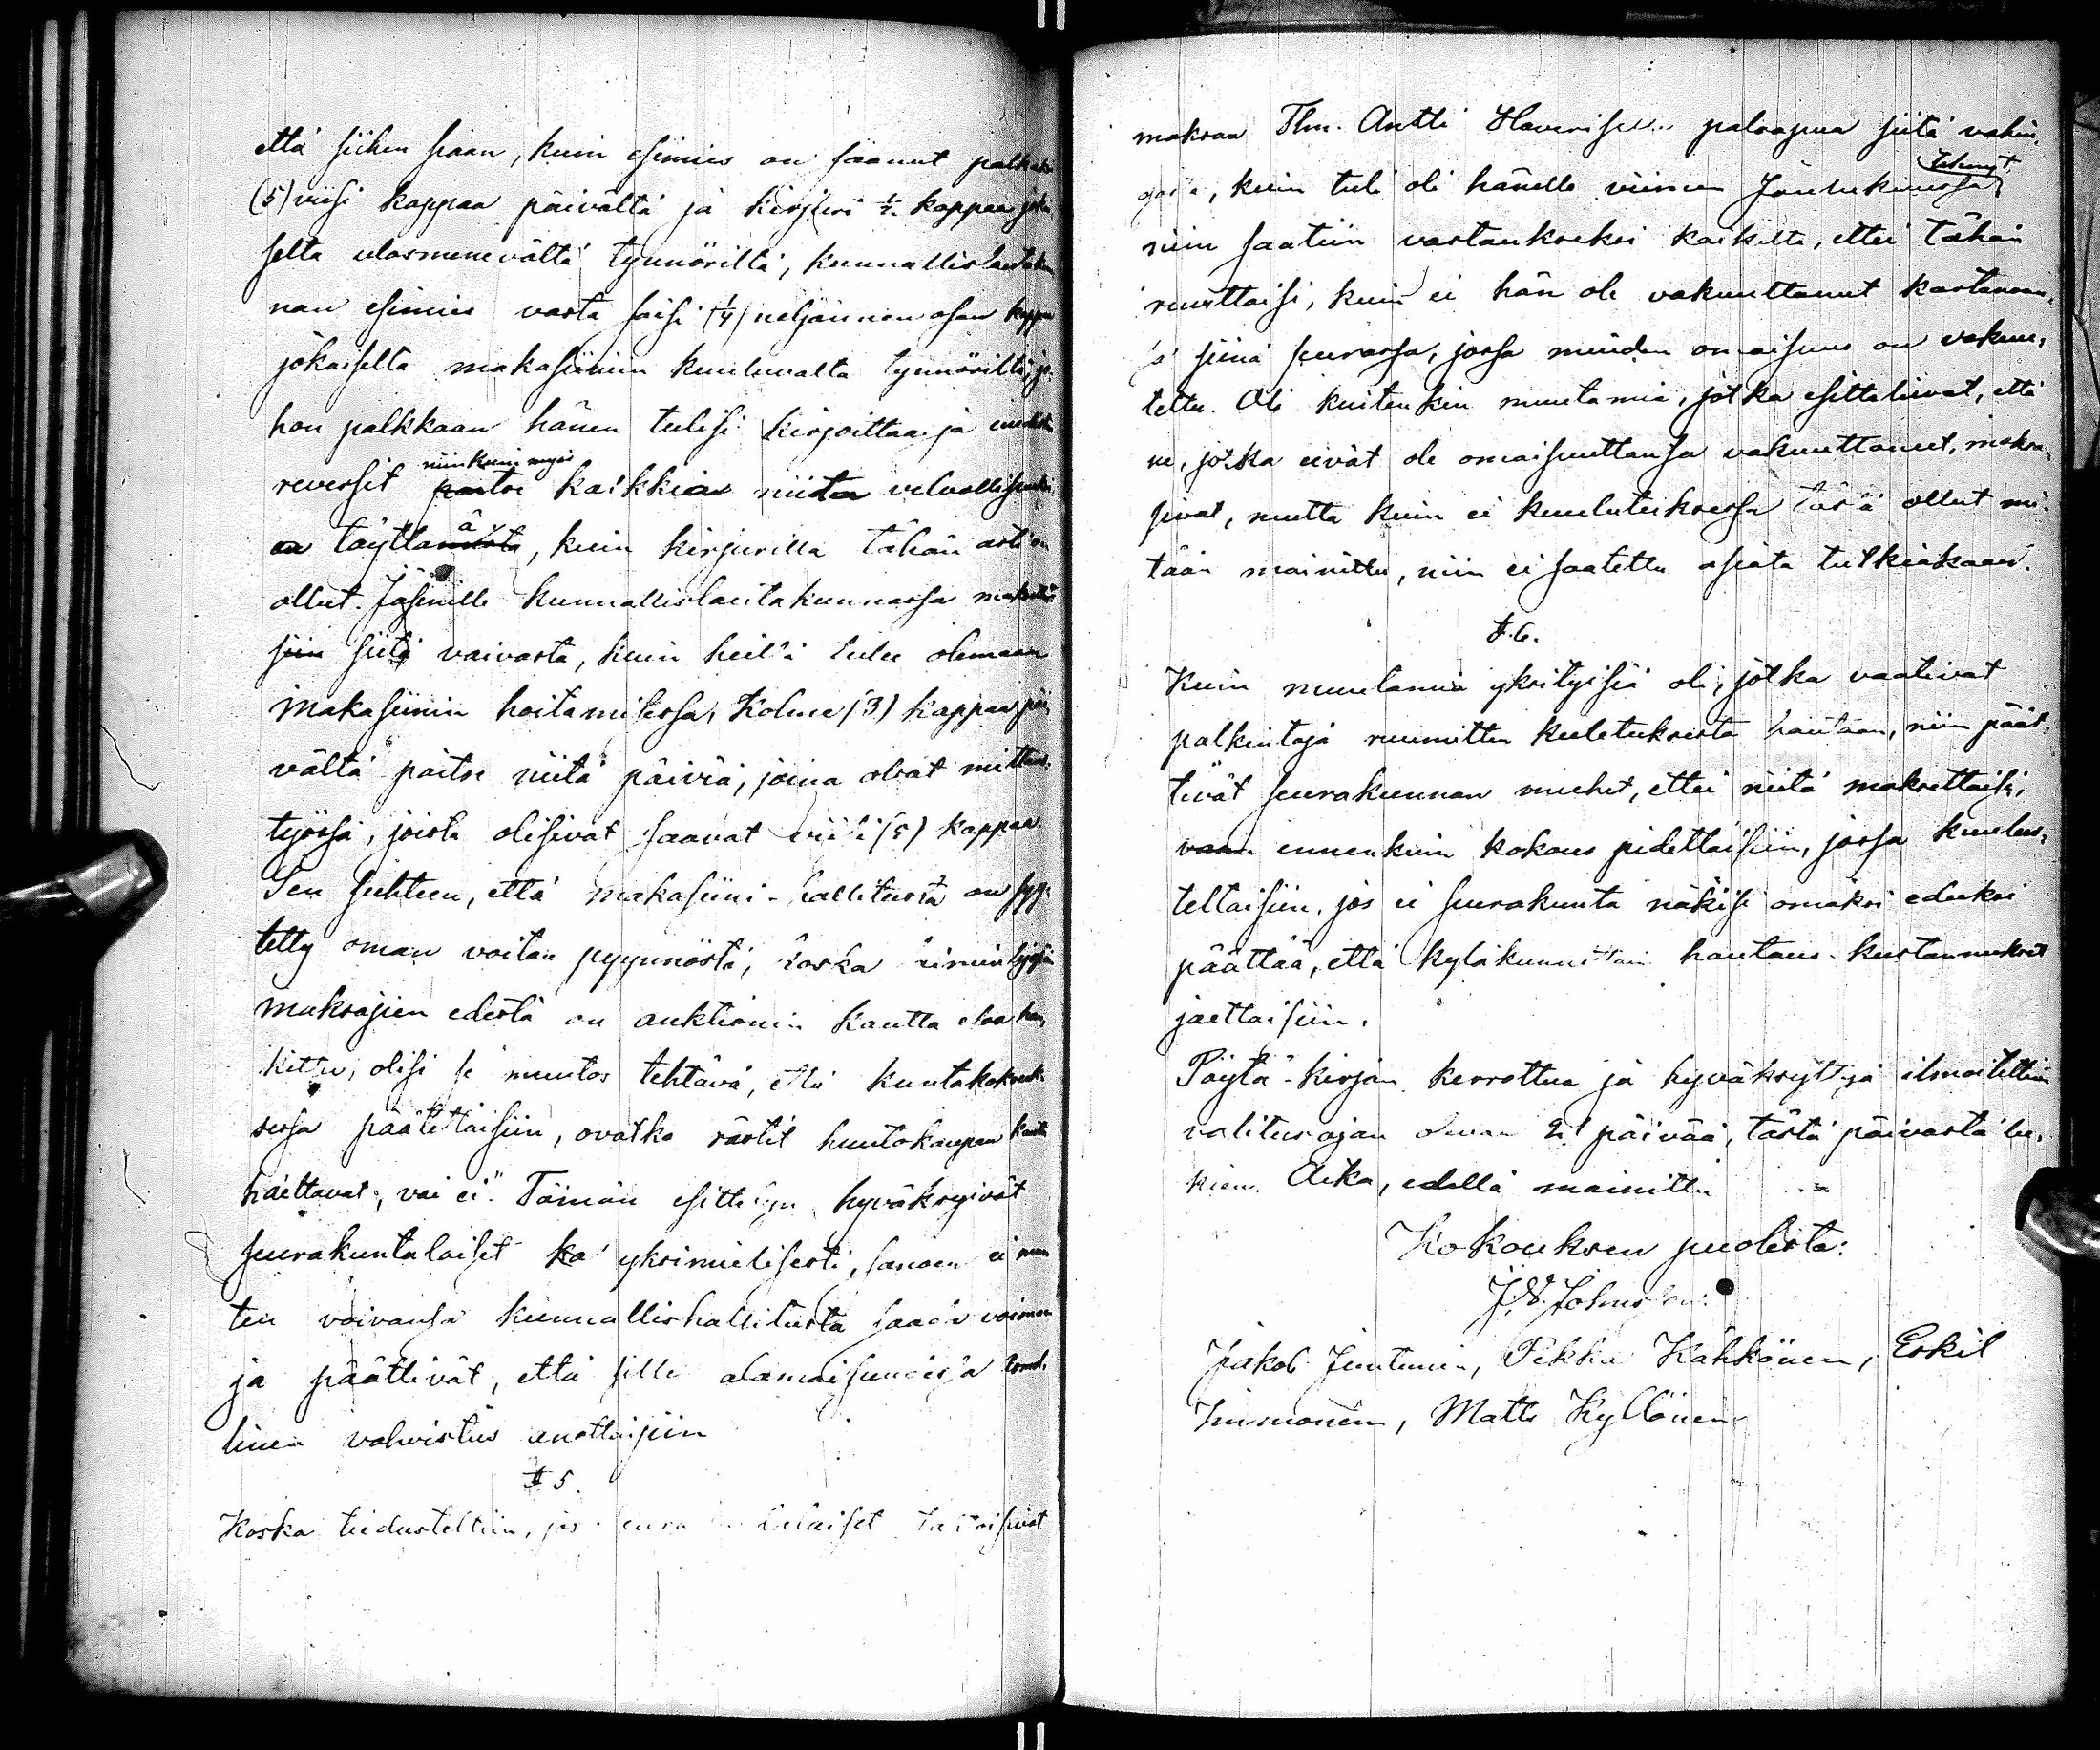 että siihen siaan, kuin esimies on saanut palkaksi
(5) viisi kappaa päivältä ja kirjuri ½ kappaa jokai
selta ulosmenevältä tynnöriltä, kunnallislautakun
nan esimies vasta saisi (¼) neljännen osan kappaa
jokaiselta makasiiniin kuuluvalta tynnöriltä, jo
hon palkkaan hänen tulisi kirjoittaa ja uudistaa
reversit niinkuin myös paitse kaikkia niita velvollisuuksi
en täyttamista ä, kuin kirjurilla tähän asti on
ollut. Jäsenille kunnallislautakunnassa maksettai
siin siitä vaivasta, kuin heillä tulee olemaan
makasiinin hoitamisessa, Kolme (3) kappaa päi
vältä paitse niitä päiviä, joina ovat mittaus
työssä, joista olisivat saavat viisi (5) kappaa
Sen suhteen, että makasiini-hallitusta on syy-
tetty oman voiton pyynnöstä, koska
maksajien edestä on auktionin kautta eloa han,
kittu, olisi se muutos tehtävä, että kuntakokouk
sessa päätettäisiin, ovatko rästit huutokaupan kautta
haettavat, vai ei". Tämän esittelyn hyväksyivät
seurakuntalaiset ka yksimielisesti, sanoen ei muu
ten voivansa kunnallishallitusta saada voimaan
ja päättivät, että sille alamaisuudessa
linen vahvistus anottaisiin
§ 5.
Koska tiedusteltiin, jos seurakuntalaiset tahtoisivat
maksaa Tlm. Antti Haverisen paloapua siitä vahin,
gosta, kuin tuli oli hänelle viimen Joulukuussa tehnyt
niin saatiin vastaukseksi kaikilta, ettei tähän
ruvettaisi, kuin ei hän ole vakuuttanut kartanoan,
sa siinä seurassa, jossa muiden omaisuus on vakuu,
tettu. Oli kuitenkin muutamia, jotka esittelivät, että
ne, jotka eivät ole omaisuuttansa vakuuttaneet, maksai,
sivat, mutta kuin ei kuulutuksessa tästä ollut mi-
tään mainittu, niin ei saatettu asiata tutkiakaan.
§ 6.
Kuin muutamia yksityisiä oli, jotka vaativat
palkintoja ruumitten kuletuksesta hautaan, niin päät,
tivät seurakunnan miehet, ettei niitä maksettaisi,
vaan ennenkuin kokous pidettäisiin, jossa kuulus,
teltaisiin, jos ei seurakunta näkisi omaksi eduksi
päättää, että kyläkunnittain hautaus-kustannukset
jaettaisiin.
Pöytä-kirjan kerrottua ja hyväksyttyä ilmoitettiin
valitusajan olevan 21 päivää, tästä päivästä lu,
kien. Aika, edellä mainittu
Kokouksen puolesta:
J. V. Johnsson.
Jakob Juntunen, Pekka Kähkönen, Eskil
Immonen, Matts Kyllönen